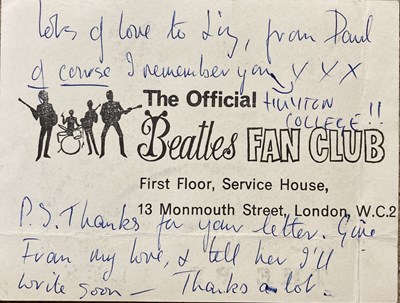 Lots of love to Liz, from Paul
of course I remember you, X X X
The Official
COLLEGE!!
Beatles FAN CLUB
First Floor, Service House,
13 Monmouth Street, London, W.C.2
P.S. Thanks for your letter. Give
Fran my love, & tell her I'll
write soon — Thanks a lot.